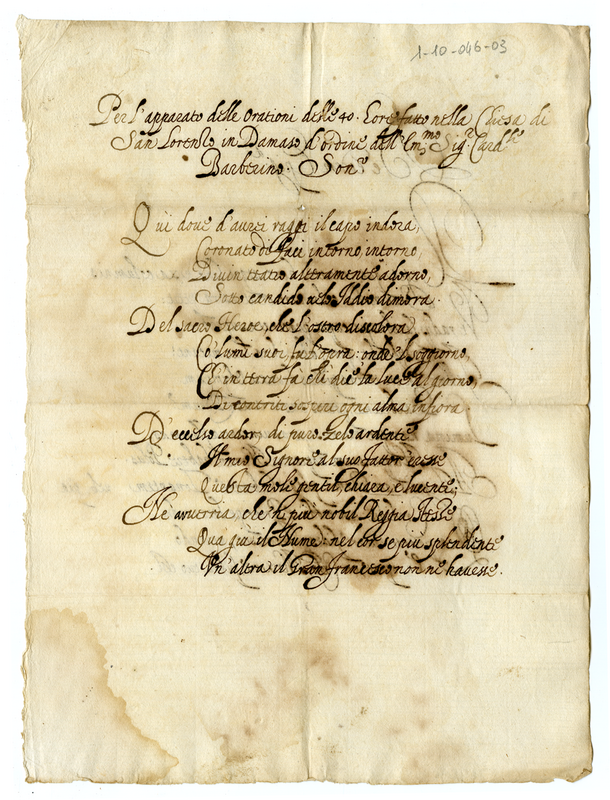 1-10-046-03
Per l'apparato delle Orationi delle 40. hore fatto nella Chiesa di
San Lorenzo in Damaso d'ordine dell' Em.mo Sig.r Card.le
Barberino. Son.o
Qui doue d'aurei raggi il capo indora,
Coronato di faci intorno, intorno,
Diuin teatro alteramente adorno,
Sotto candido uelo Iddio dimora.
Del sacro Heroe, che l'ostro discolora
Co' lumi suoi fu l'opra: onde'l soggiorno,
Ch'in terra fa chi die' la luce al giorno,
Di contriti sospiri ogni alma infiora.
D'eccelso ardor, di puro zelo ardente
Il mio Signore al suo fattor eresse
Questa mole gentil, chiara, e lucente;
Ne auuerria, che più nobil Reggia
Qua giù il Nume: nel cor se più splendente
Vn altra il Gran Francesco non ne hauesse.